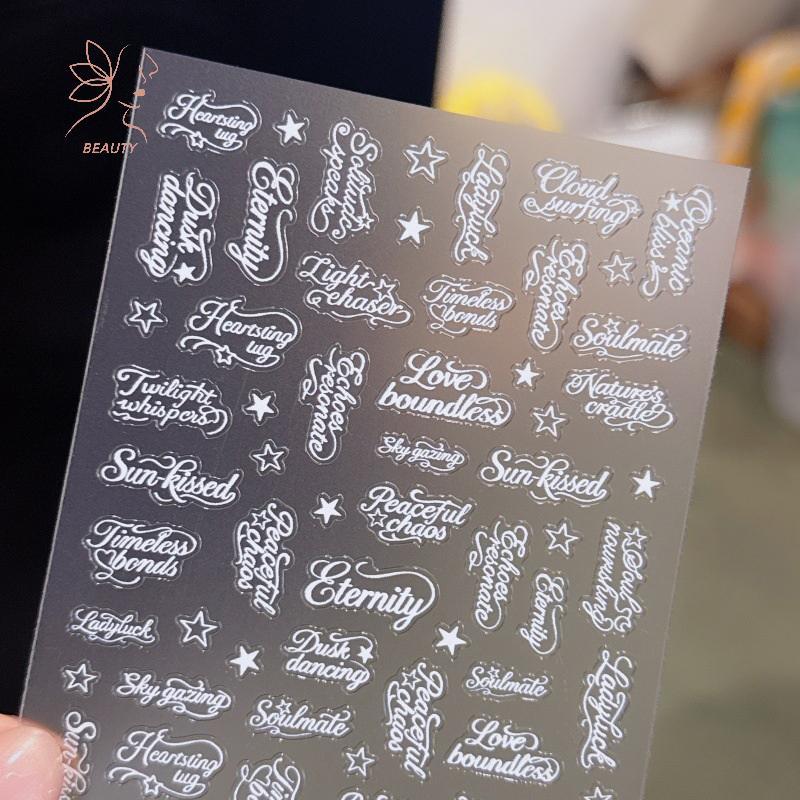 BEAUTY
Heartsting
tug
Solitude
speaks
Ladyluck
Cloud
surfing
Oceanic
bliss
Dusk
dancing
Eternity
Light
chaser
Timeless
bonds
Echoes
resonate
Soulmate
Heartsting
tug
Twilight
whispers
Echoes
resonate
Love
boundless
Nature's
cradle
Sky gazing
Sun-kissed
Sun-kissed
Peaceful
chaos
Timeless
bonds
Peaceful
chaos
Eternity
Echoes
resonate
Eternity
Soul
nourishing
Ladyluck
Dusk
dancing
Peaceful
chaos
Soulmate
Ladyluck
Sky gazing
Soulmate
Love
boundless
Heartsting
tug